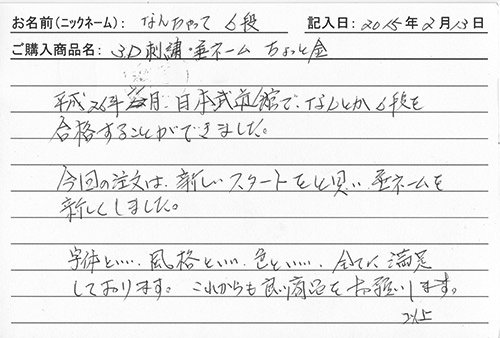 お名前(ニックネーム): なんちゃって 6段 記入日: 2015年2月13日
ご購入商品名: 3D刺繍・垂ネーム ちょっと金
平成26年 月 日本武道館で、なんとか6段を
合格することができました。
今回の注文は、新しいスタートをと思い 垂ネームを
新しくしました。
字体といい、風格といい、色といい、全てに満足
しております。これからも良い商品をお願いします。